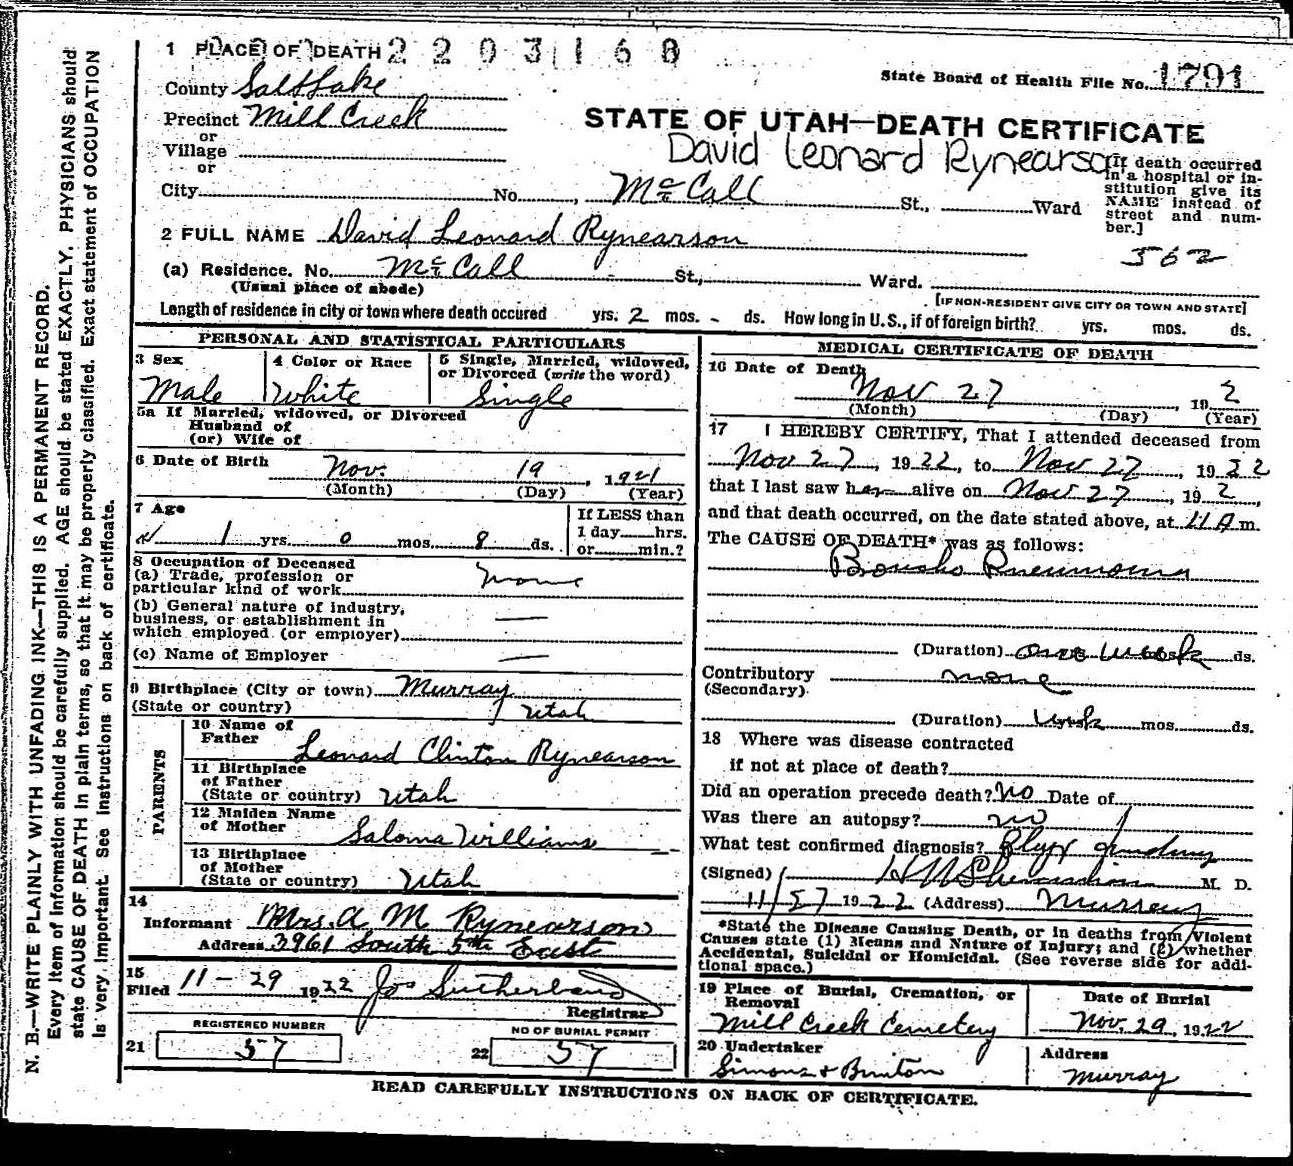 N. B.—WRITE PLAINLY WITH UNFADING INK—THIS IS A PERMANENT RECORD.
Every item of information should be carefully supplied. AGE should be stated EXACTLY. PHYSICIANS should
state CAUSE OF DEATH in plain terms, so that it may be properly classified. Exact statement of OCCUPATION
is very important. See instructions on back of certificate.
1 PLACE OF DEATH 2203168
State Board of Health File No. 1791
County Salt Lake
Precinct Mill Creek
or
Village
or
City No. McCall St., Ward
STATE OF UTAH—DEATH CERTIFICATE
David Leonard Rynearson
[If death occurred in a hospital or in-
stitution give its
NAME instead of
street and num-
ber.]
2 FULL NAME David Leonard Rynearson
562
(a) Residence. No. McCall St., Ward.
(Usual place of abode)
[IF NON-RESIDENT GIVE CITY OR TOWN AND STATE]
Length of residence in city or town where death occured yrs. 2 mos. - ds. How long in U. S., if of foreign birth? yrs. mos. ds.
PERSONAL AND STATISTICAL PARTICULARS
3 Sex
Male
4 Color or Race
White
5 Single, Married, widowed,
or Divorced (write the word)
Single
5a If Married, widowed, or Divorced
Husband of
(or) Wife of
6 Date of Birth Nov. 19, 1921
(Month) (Day) (Year)
7 Age
1 yrs. 0 mos. 8 ds.
If LESS than
1 day hrs.
or min.?
8 Occupation of Deceased
(a) Trade, profession or
particular kind of work none
(b) General nature of industry,
business, or establishment in
which employed (or employer) —
(c) Name of Employer —
9 Birthplace (City or town) Murray
(State or country) Utah
PARENTS
10 Name of
Father Leonard Clinton Rynearson
11 Birthplace
of Father
(State or country) Utah
12 Maiden Name
of Mother Saloma Williams
13 Birthplace
of Mother
(State or country) Utah
14
Informant Mrs. A M Rynearson
Address 3961 South 5th East
15
Filed 11-29 1922 Jos Sutherland
Registrar
REGISTERED NUMBER
21 57
NO OF BURIAL PERMIT
22 57
MEDICAL CERTIFICATE OF DEATH
16 Date of Death
Nov 27, 19 2
(Month) (Day) (Year)
17 I HEREBY CERTIFY, That I attended deceased from
Nov 27, 1922, to Nov 27, 1922
that I last saw h alive on Nov 27, 19 2,
and that death occurred, on the date stated above, at 11 A m.
The CAUSE OF DEATH* was as follows:
Broncho Pneumonia
(Duration) one week ds.
Contributory none
(Secondary)
(Duration) mos. ds.
18 Where was disease contracted
if not at place of death?
Did an operation precede death? No Date of
Was there an autopsy? no
What test confirmed diagnosis?
(Signed) M. D.
1922 (Address) Murray
*State the Disease Causing Death, or in deaths from Violent
Causes state (1) Means and Nature of Injury; and (2) whether
Accidental, Suicidal or Homicidal. (See reverse side for addi-
tional space.)
19 Place of Burial, Cremation, or
Removal
Mill Creek Cemetery
Date of Burial
Nov. 29, 1922
20 Undertaker
Simons & Bruiton
Address
Murray
READ CAREFULLY INSTRUCTIONS ON BACK OF CERTIFICATE.